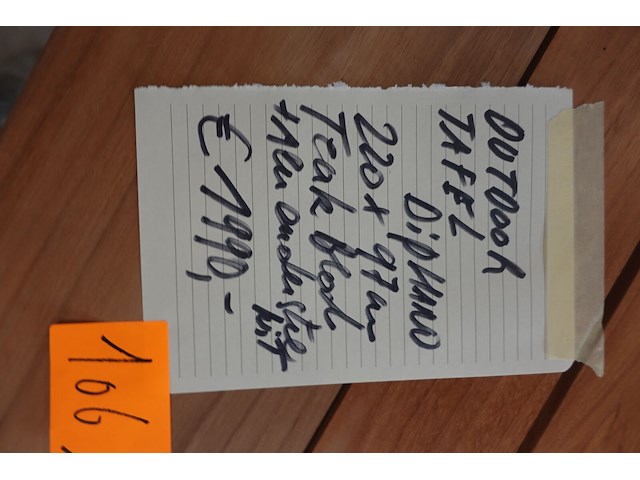 OUTDOOR
TAFEL
DiPHANO
220 x 97 cm
Teak blad
+ Alu onderstel
€ 1990,-
106